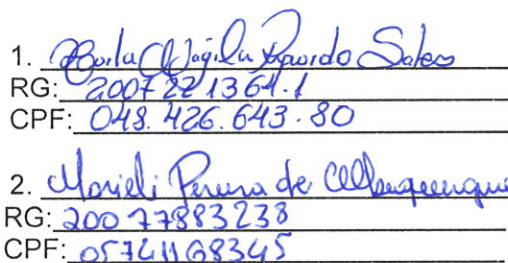 1. Sales
RG: 2007221364-1
CPF: 048.426.643-80
2. Marieli Pereira de Albuquerque
RG: 20077883238
CPF: 05741168345